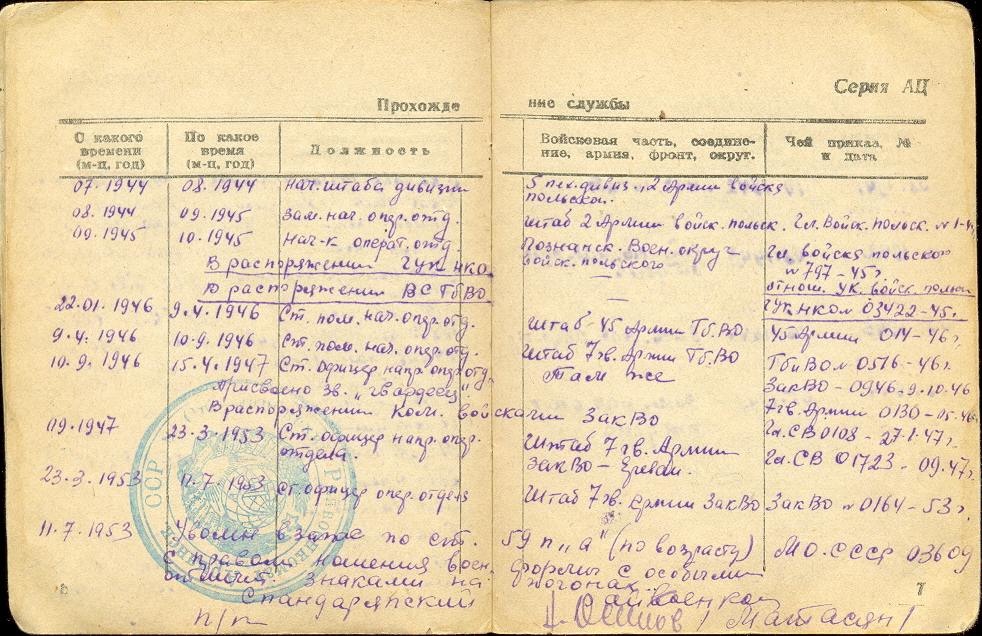 Серия АЦ
Прохождение службы
С какого времени (м-ц, год) По какое время (м-ц, год) Должность Войсковая часть, соединение, армия, фронт, округ. Чей приказ, № и дата
07.1944 08.1944 нач. штаба дивизии 5 пех. дивиз., 2 Армии войска
польской.
08.1944 09.1945 зам. нач. опер. отд. штаб 2 Армии войск. польск. Гл. Войск. польск. №
09.1945 10.1945 нач-к операт. отд. Познанск. Воен. округ Гл. войска польского
войск. польского № 797-45 г.
В распоряжении ГУК НКО — отнош. УК. войск. польск
В распоряжении ВС ТбВО — ГУК НКО № 03422-45 г.
22.01.1946 9.4.1946 Ст. пом. нач. опер. отд. Штаб 45 Армии Тб.ВО 45 Армии 014-46 г.
9.4.1946 10.9.1946 Ст. пом. нач. опер. отд. Штаб 7 гв. Армии Тб.ВО ТбиВО № 0516-46 г.
10.9.1946 15.4.1947 Ст. офицер напр. опер. отд. Там же ЗакВО-0946-9.10.46
Присвоено зв. "гвардеец" 7 гв. Армии 0130-05.46
В распоряжении ком. войсками ЗакВО Гл. СВ 0108-27.1.47 г.
09.1947 23.3.1953 Ст. офицер напр. опер. Штаб 7 гв. Армии Гл. СВ 01723-09.47 г.
отдела. ЗакВО-Ереван.
23.3.1953 11.7.1953 Ст. офицер опер. отдела Штаб 7 гв. Армии ЗакВО ЗакВО № 0164-53 г.
11.7.1953 Уволен в запас по ст. 59 п "а" (по возрасту) М.О. СССР 03609
С правом ношения воен. формы с особыми
отличит. знаками на погонах
п/п Райвоенком
/Матасян/
7